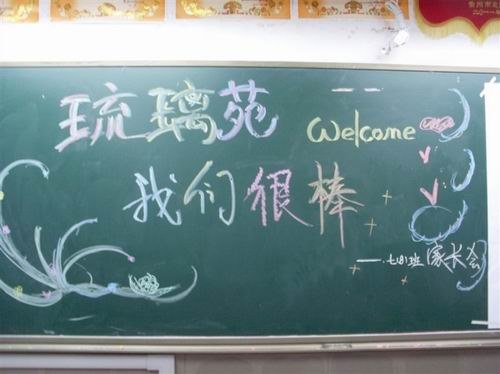 琉璃苑
Welcome
我们很棒
一.七(8)班 家长会